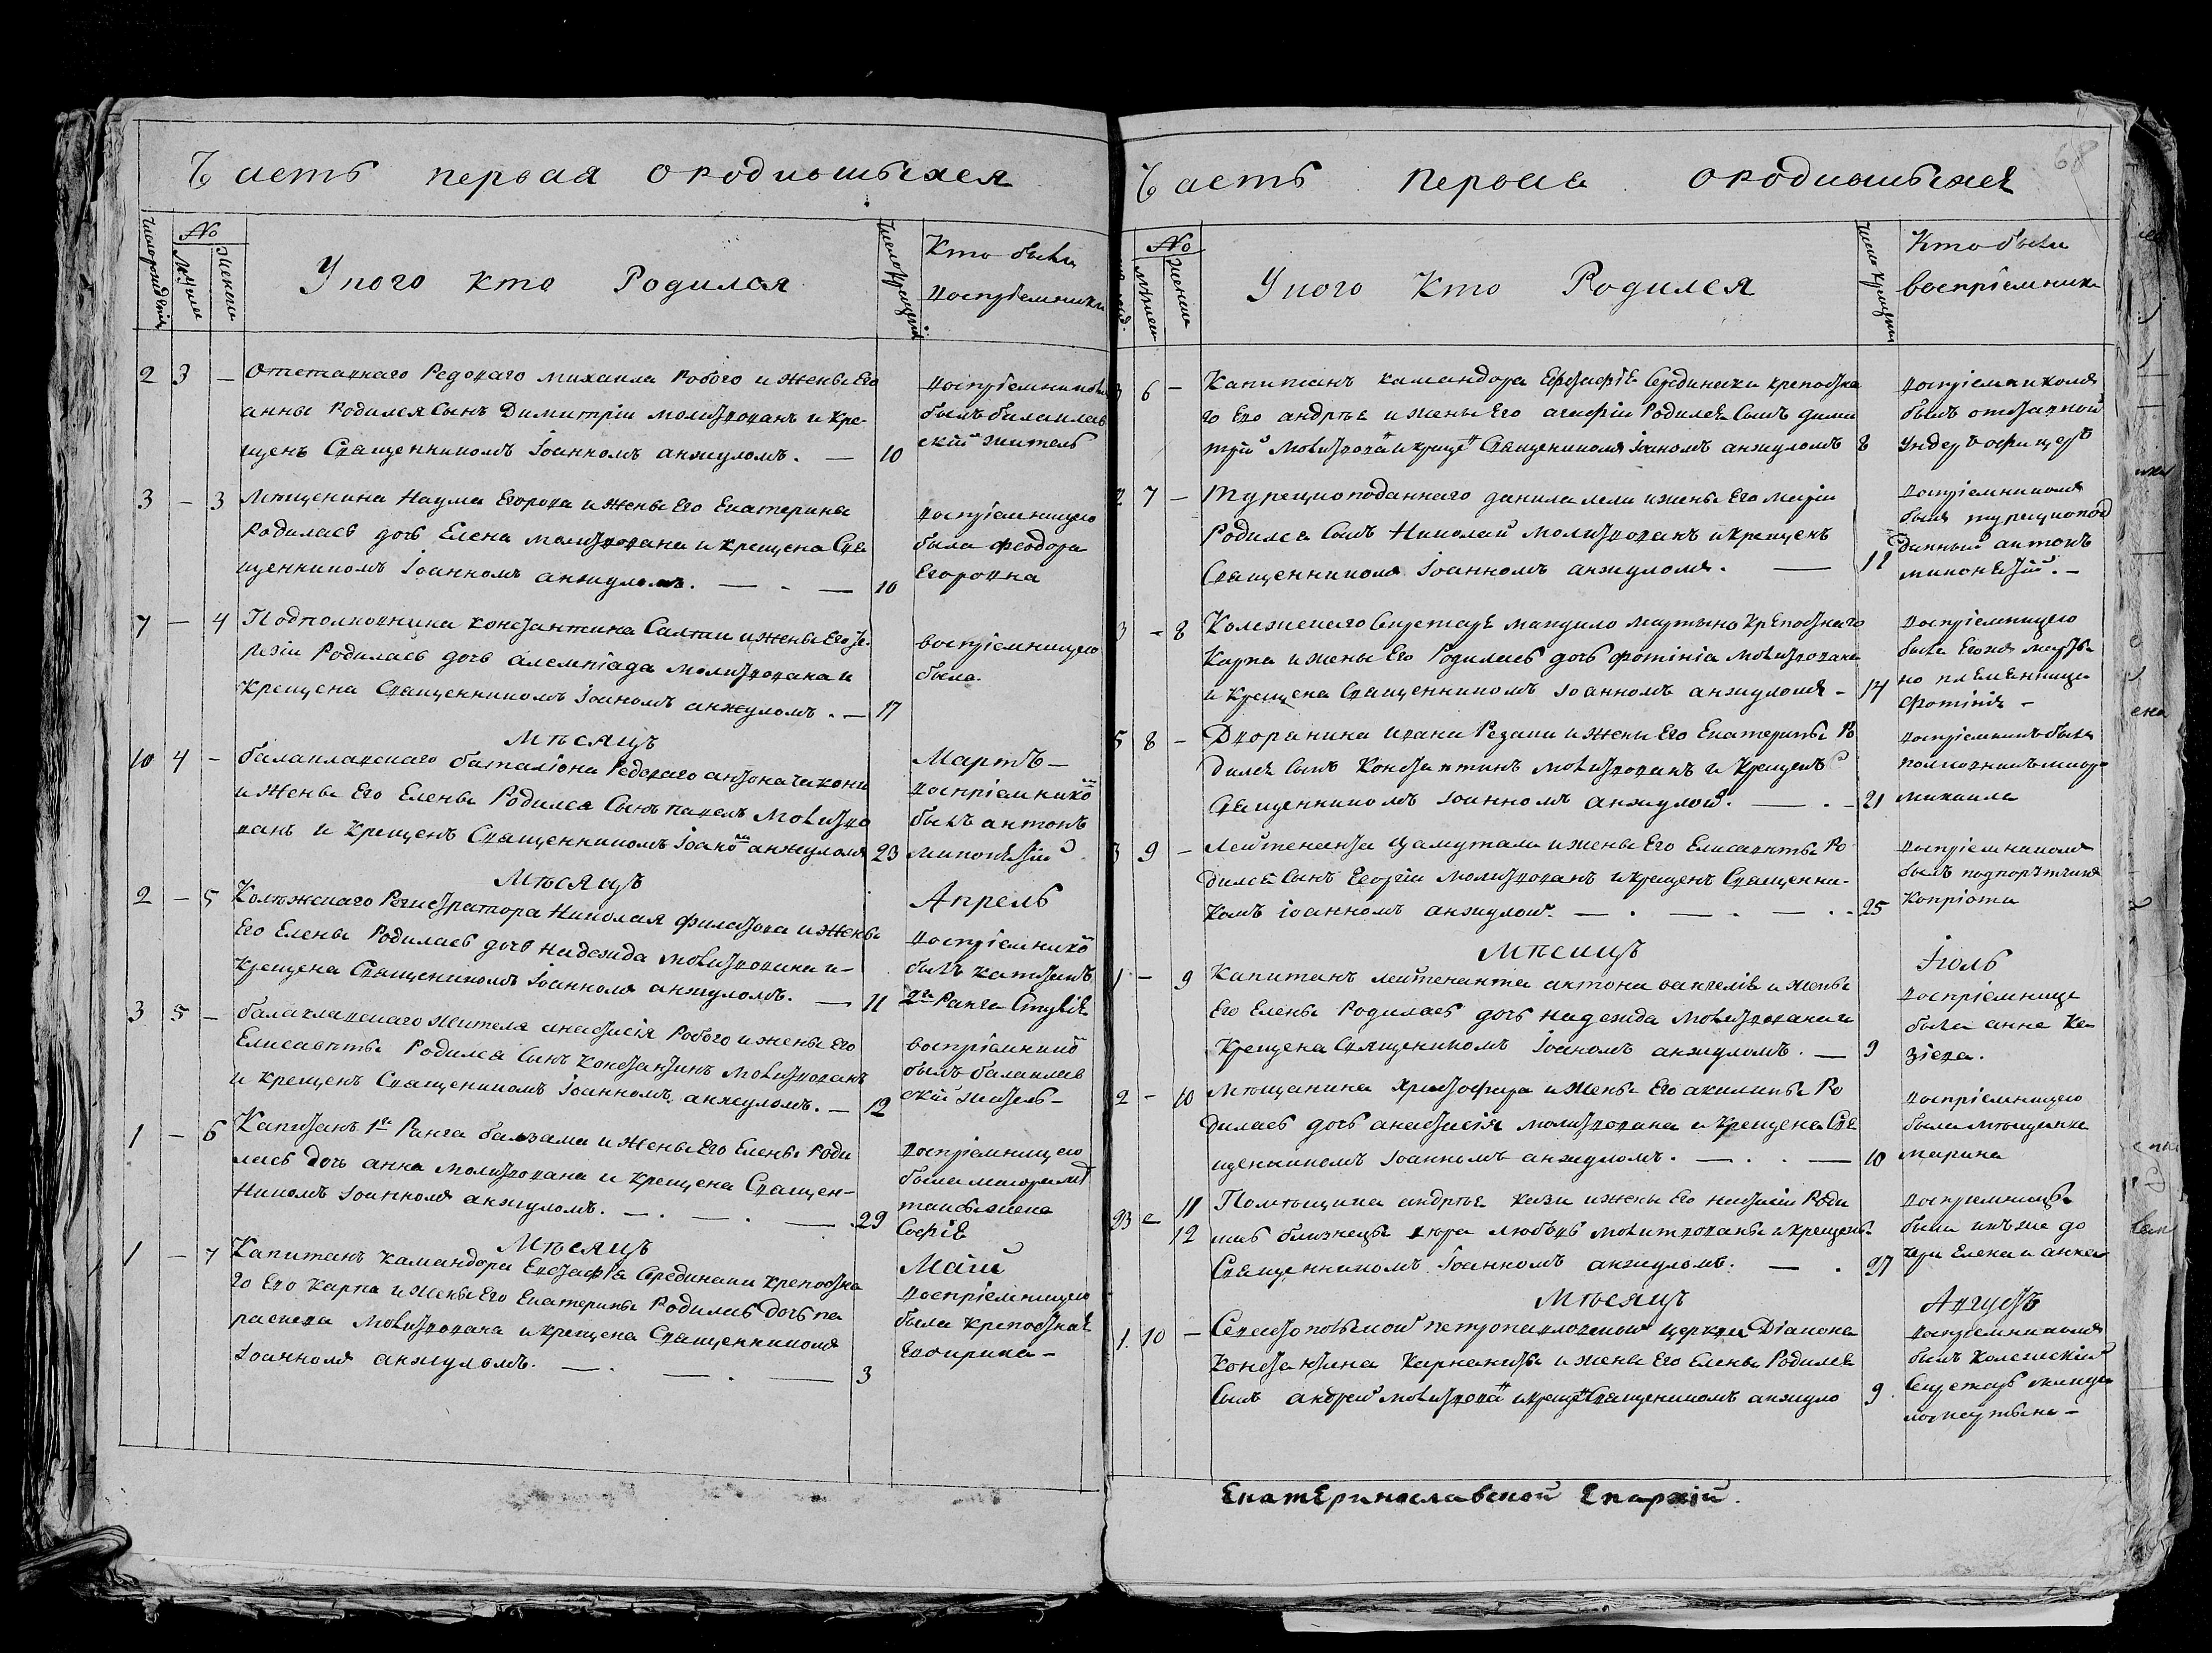 Часть первая ородившыхся
Число рождения
№
Мужеи
Женеи
Уного кто Родился
Число крещенія
Кто были
воспріемники
2 3 — отставнаго Редоваго михаила Робого и жены Его
анны Родился Сынъ Димитріи молитвованъ и кре-
щенъ Священникомъ Іоанномъ анжуломъ. — 10
воспріемникомъ
былъ балаклав
скій житель
3 — 3 Мещенина Наума Егорова и жены Его Екатерины
Родилась дочь Елена молитвована и крещена Свя
щенникомъ Іоанномъ анжуломъ. — - — 10
воспріемницею
была феодора
Егоровна
7 — 4 Подполковника константина Салти и жены Его
Родилась дочь алемпіада молитвована и
крещена Священникомъ Іоаномъ анжуломъ. — 17
воспріемницею
была.
Мѣсяцъ Мартъ —
10 4 - балаклавскаго баталіона Редоваго антона чикони
и жены Его Елены Родился Сынъ павелъ молитво
ванъ и крещенъ Священникомъ Іоаномъ анжуломъ 23
воспріемнико
былъ антонъ
миконезій
Мѣсяцъ Апрель
2 - 5 Колѣжскаго Регистратора Николая филатова и жены
Его Елены Родилась дочь надежда молитвована и-
крещена Священикомъ Іоанномъ анжуломъ. — 11
воспріемнико
былъ капитанъ
2го Ранга Стулія
3 5 - балаклавскаго жителя анастасія Робого и жены Его
Елисаветы Родился Сынъ константинъ молитвованъ
и крещенъ Священникомъ Іоанномъ анжуломъ. — 12
воспріемнико
былъ балаклав
скій житель-
1 - 6 Капитанъ 1го Ранга балзами и жены Его Елены Роди
лась дочь анна молитвована и крещена Священ-
никомъ Іоанномъ анжуломъ. — . — . — 29
воспріемницею
была
жена
Софія
Мѣсяцъ Маій
1 - 7 Капитанъ Камандора Евстафія Серединаки крепостна
го Его Карпа и жены Его Екатерины Родилась дочь па
раскева молитвована и крещена Священникомъ
Іоанномъ анжуломъ. — . — . — 3
воспріемницею
была крепостная
Его ирина-
Часть первыя ородившыхся
68
№
Мужеи
Женеи
Уного Кто Родился
Число крещенія
Кто были
воспріемники
3 6 - Капитанъ камандора Ефстафія Серединаки крепостна
го Его андрѣя и жены Его агафіи Родился Сынъ дими
трій молитвова и креще Священникомъ Іоаномъ анжуломъ 8
воспріемникомъ
былъ отставной
Ундеръ офицеръ
7 - Турецкоподаннаго данила лели и жены Его маріи
Родился Сынъ Николай молитвованъ и крещенъ
Священникомъ Іоанномъ анжуломъ. — 11
воспріемникомъ
былъ турецкопод
данный антонъ
миконезій. -
3 - 8 Колежскаго Секретаря мангило мартыно крепостнаго
Карпа и жены Его Родилась дочь фотініа молитвована
и крещена Священникомъ Іоанномъ анжуломъ - 14
воспріемницею
была Егожа марты
но племенница
фотинія -
5 8 - Дворанина ивана Резани и жены Его Екатерины Ро
дился Сынъ Константинъ молитвованъ и крещенъ
Священникомъ Іоанномъ анжулом. — . - 21
воспріемникъ былъ
полковникъ
михаила
3 9 - Лейтенанта и жены Его Елисаветы Ро
дился Сынъ Георгіи молитвованъ и крещенъ Священни-
комъ Іоанномъ анжулом. — . — . — . - 25
воспріемникомъ
былъ подпорѣтчикъ
Копріоти
Мѣсяцъ Іюль
1 - 9 Капитанъ лейтенанта антона вангелія и жены
Его Елены Родилась дочь надежда молитвована и
крещена Священикомъ Іоаномъ анжуломъ. — 9
воспріемнице
была анна Ке
зіева.
2 - 10 Мѣщанина христофира и жены Его акилины Ро
дилась дочь анастасія молитвована и крещена Свя
щенникомъ Іоанномъ анжуломъ. — . — 10
воспріемницею
была мѣщанка
марина
23 - 11 12 Помѣщика андрѣя кази и жены Его Роди
шась близнецы вѣра любовь молитвованы и крещены
Священникомъ Іоанномъ анжуломъ. — . 27
воспріемницы
были ихъже до
чери Елена и анна
Мѣсяцъ Августъ
1. 10 - Севастопольской петропавловской церкви Діакона
Константина Карнакиты и жены Его Елены Родился
Сынъ андрей молитвова и креще Священикомъ анжуло 9
воспріемникомъ
былъ Колежскій
Секретарь манги
ло мартыно -
Екатеринославской Епархій.